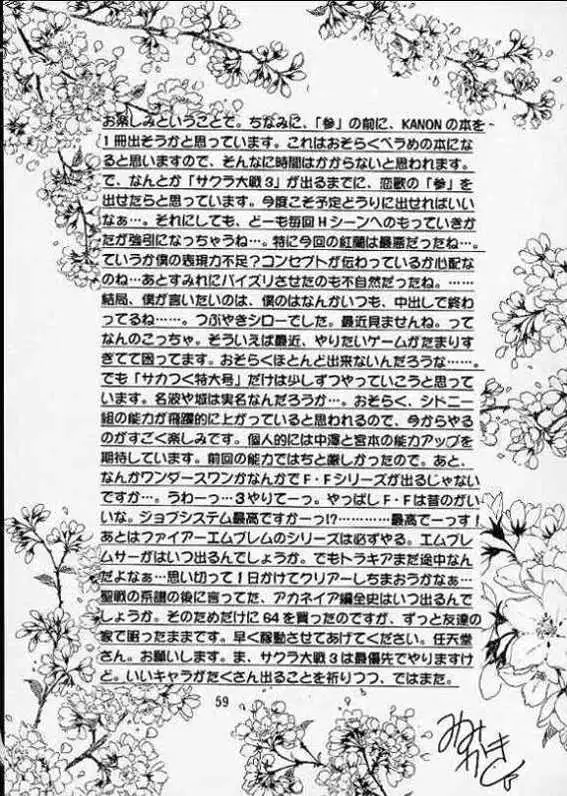 お楽しみということで。ちなみに、「参」の前に、KANONの本を
1冊出そうかと思っています。これはおそらくペラめの本にな
ると思いますので、そんなに時間はかからないと思われます。
で、なんとか「サクラ大戦3」が出るまでに、恋獣の「参」を
出せたらと思っています。今度こそ予定どうりに出せればいい
なぁ…。それにしても、どーも毎回Hシーンへのもっていきか
たが強引になっちゃうね…。特に今回の紅蘭は最悪だったね…。
ていうか僕の表現力不足?コンセプトが伝わっているか心配な
のね…あとすみれにパイズリさせたのも不自然だったね。……
結局、僕が言いたいのは、僕のはなんかいつも、中出しで終わ
ってるね……。つぶやきシローでした。最近見ませんね。って
なんのこっちゃ。そういえば最近、やりたいゲームがたまりす
ぎてて困ってます。おそらくほとんど出来ないんだろうな……。
でも「サカつく特大号」だけは少しずつやっていこうと思って
います。名波や城は実名なんだろうか…。おそらく、シドニー
組の能力が飛躍的に上がっていると思われるので、今からやる
のがすごく楽しみです。個人的には中澤と宮本の能力アップを
期待しています。前回の能力ではちと厳しかったので。あと、
なんかワンダースワンかなんかでF・Fシリーズが出るじゃない
ですか…。うわーっ…3やりてーっ。やっぱしF・Fは昔のがい
いな。ジョブシステム最高ですかーっ!?…………最高でーっす!
あとはファイアーエムブレムのシリーズは必ずやる。エムブレ
ムサーガはいつ出るんでしょうか。でもトラキアまだ途中なん
だよなぁ…思い切って1日かけてクリアーしちまおうかなぁ…
聖戦の系譜の後に言ってた、アカネイア編全史はいつ出るんで
しょうか。そのためだけに64を買ったのですが、ずっと友達の
家で眠ったままです。早く稼動させてあげてください。任天堂
さん。お願いします。ま、サクラ大戦3は最優先でやりますけ
ど。いいキャラがたくさん出ることを祈りつつ、ではまた。
59